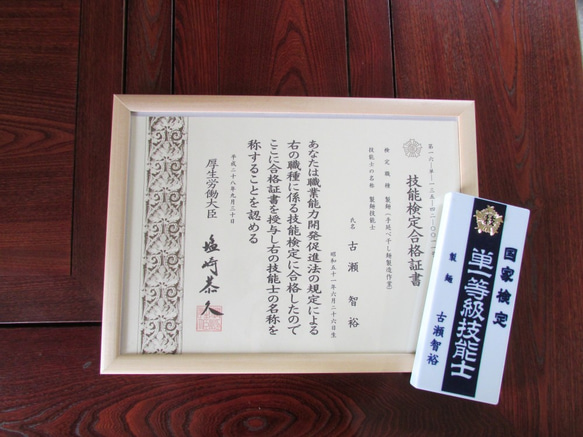 技能検定合格証書
検定職種 製麺(手延べ干し麺製造作業)
技能士の名称 製麺技能士
氏名 古瀬智裕
昭和五十一年六月二十六日生
あなたは職業能力開発促進法の規定による
右の職種に係る技能検定に合格したので
ここに合格証書を授与し右の技能士の名称を
称することを認める
平成二十八年九月三十日
厚生労働大臣 塩崎恭久
国家検定
単一等級技能士
製麺 古瀬智裕